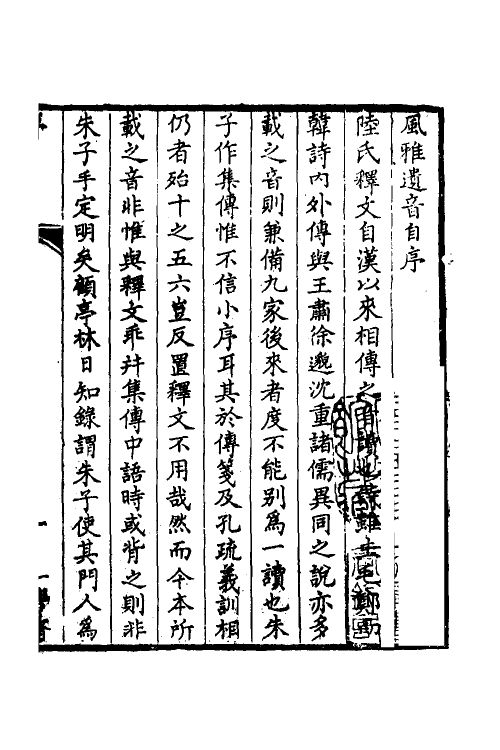 風雅遺音自序
陸氏釋文自漢以來相傳之音讀也詩雖主毛鄭而
韓詩內外傳與王肅徐邈沈重諸儒異同之說亦多
載之音則兼備九家後來者度不能別爲一讀也朱
子作集傳惟不信小序耳其於傳箋及孔疏義訓相
仍者殆十之五六豈反置釋文不用哉然而今本所
載之音非惟與釋文乖幷集傳中語時或背之則非
朱子手定明矣顧亭林日知錄謂朱子使其門人爲